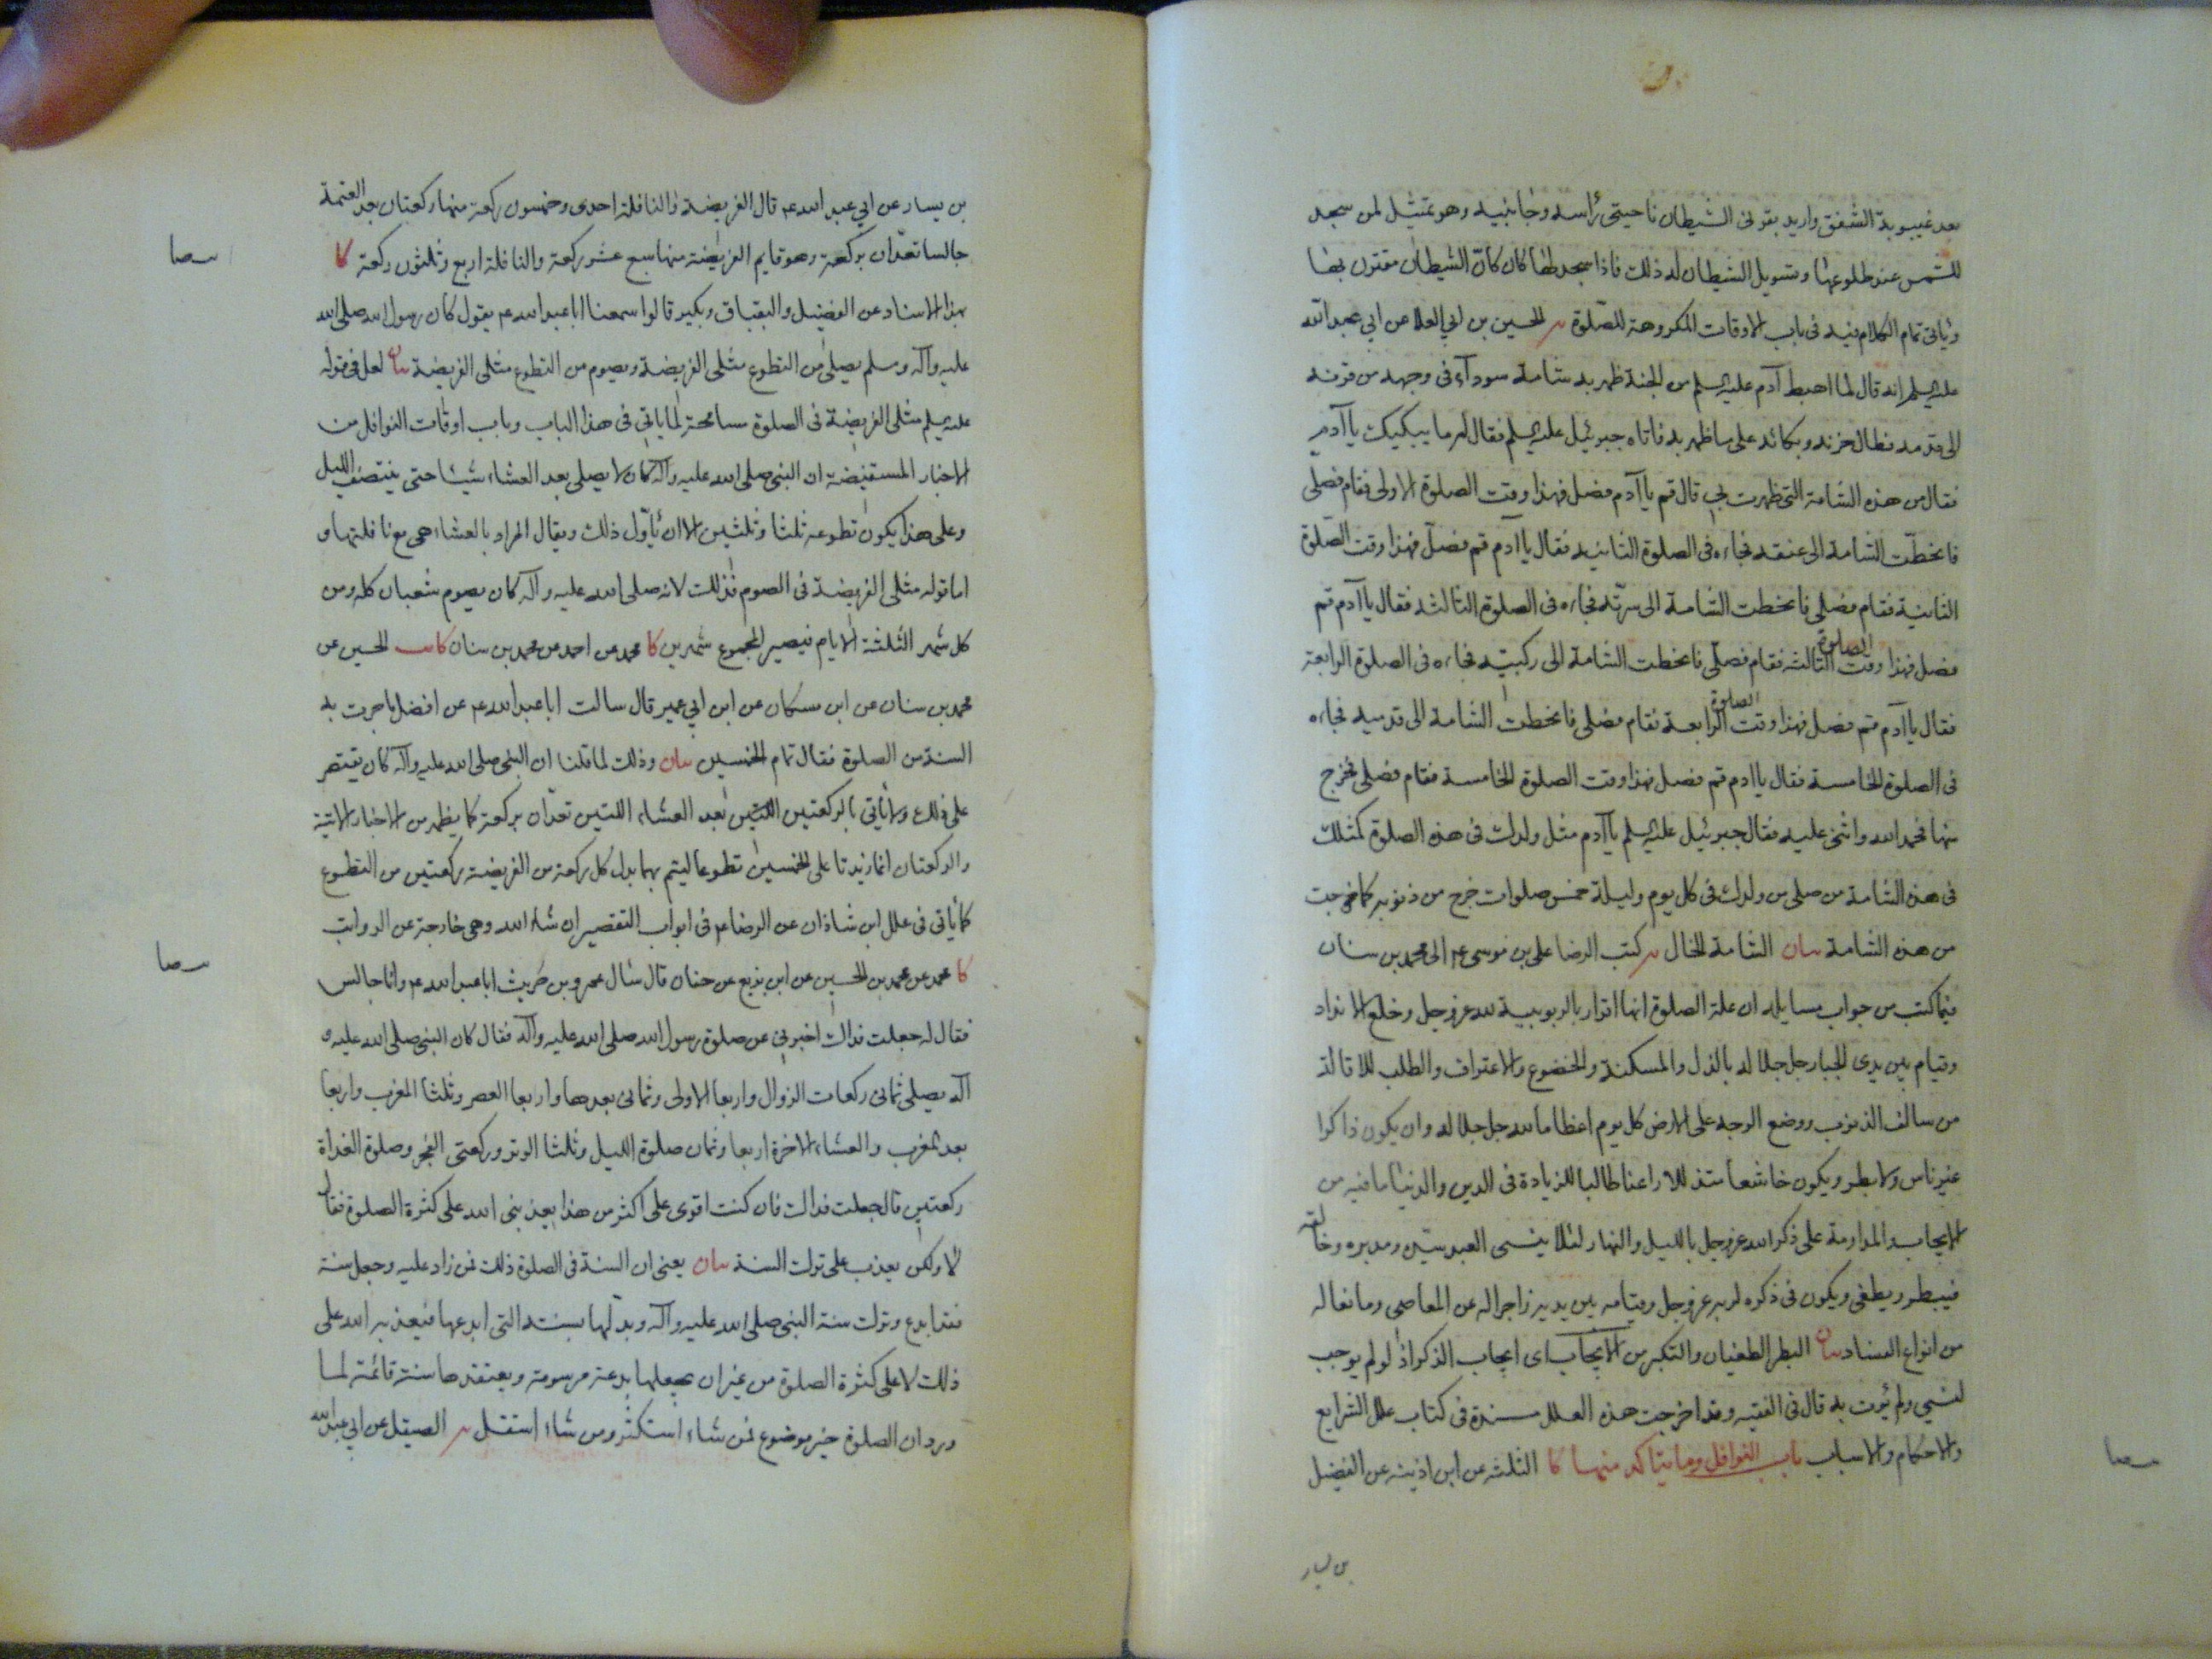 بعد غيبوبة الشفق واريد بقرنى الشيطان ناحيتى رأسه وجانبيه وهو تمثيل لمن سجد
للشمس عند طلوعها وتسويل الشيطان له ذلك فاذا سجد لها كان كانّ الشيطان مقترن بها
وياتى تمام الكلام فيه فى باب الاوقات المكروهة للصلوة يه الحسين بن ابي العلا عن ابي عبد الله
عليه السلم انه قال لما اهبط آدم عليه السلم من الجنة ظهر به شامة سوداء فى وجهه من قرنه
الى قدمه فطال حزنه وبكائه على ما ظهر به فاتاه جبرئيل عليه السلم فقال له ما يبكيك يا آدم
فقال من هذه الشامة التى ظهرت بي قال قم يا آدم فصل فهذا وقت الصلوة الاولى فقام فصلى
فانحطّت الشامة الى عنقه فجاءه فى الصلوة الثانية فقال يا آدم قم فصلّ فهذا وقت الصلوة
الثانية فقام فصلى فانحطت الشامة الى سرّته فجاءه فى الصلوة الثالثه فقال يا آدم قم
فصل فهذا وقت الصلوة الثالثه فقام فصلّى فانحطت الشامة الى ركبتيه فجاءه فى الصلوة الرابعة
فقال يا آدم قم فصل فهذا وقت الصلوة الرابعة فقام فصلى فانحطت الشامة الى قدميه فجاءه
فى الصلوة الخامسة فقال يا ادم قم فصل فهذا وقت الصلوة الخامسة فقام فصلى فخرج
منها فحمد الله واثنى عليه فقال جبرئيل عليه السلم يا آدم مثل ولدك فى هذه الصلوة كمثلك
فى هذه الشامة من صلى من ولدك فى كل يوم وليلة خمس صلوات خرج من ذنوبه كما خرجت
من هذه الشامة بيان الشامة الخال يه كتب الرضا على بن موسى ع الى محمد بن سنان
فيما كتب من جواب مسايله ان علة الصلوة انها اقرار بالربوبية لله عز وجل وخلع الانداد
وقيام بين يدى الجبار جل جلاله بالذل والمسكنة والخضوع والاعتراف والطلب للاقالة
من سالف الذنوب ووضع الوجه على الارض كل يوم اعظاما لله جل جلاله وان يكون ذاكرا
غير ناس ولا بطر ويكون خاشعا متذللا راغبا طالبا للزيادة فى الدين والدنيا ما فيه من
الايجاب والمداومة على ذكر الله عز وجل بالليل والنهار لئلا ينسى العبد سيّده ومدبره وخالقه
فيبطر ويطغى ويكون فى ذكره لربه عز وجل وقيامه بين يديه زاجرا له عن المعاصى ومانعا له
من انواع الفساد بيان البطر الطغيان والتكبر من الايجاب اى ايجاب الذكر اذ لو لم يوجب
لنسى ولم يؤت به قال فى الفقيه وقد اخرجت هذه العلل مسندة فى كتاب علل الشرايع
والاحكام والاسباب باب النوافل وما يتاكد منها كا الثلثه عن ابن اذينه عن الفضيل
بن يسار
بن يسار عن ابي عبد الله ع قال الفريضة والنافلة احدى وخمسون ركعة منها ركعتان بعد العتمة
جالسا تعدّان بركعة وهو قايم الفريضة منها سبع عشر ركعة والنافلة اربع وثلثون ركعة كا
بهذا الاسناد عن الفضيل والبقباق وبكير قالوا سمعنا ابا عبد الله ع يقول كان رسول الله صلى الله
عليه وآله وسلم يصلى من التطوع مثلى الفريضة ويصوم من التطوع مثلى الفريضة بيان لعل فى قوله
عليه السلم مثلى الفريضة فى الصلوة مسامحة لما ياتى فى هذا الباب وباب اوقات النوافل من
الاخبار المستفيضة ان النبى صلى الله عليه وآله كان لا يصلى بعد العشاء شيئا حتى ينتصف الليل
وعلى هذا يكون تطوعه ثلثا وثلثين الا ان يأوّل ذلك ويقال المراد بالعشاء هى مع نافلتها و
اما قوله مثلى الفريضة فى الصوم فذلك لانه صلى الله عليه وآله كان يصوم شعبان كله ومن
كل شهر الثلثة الايام فيصير المجموع شهرين كا محمد عن احمد عن محمد بن سنان كا يب الحسين عن
محمد بن سنان عن ابن مسكان عن ابن ابي عمير قال سالت ابا عبد الله ع عن افضل ما جرت به
السنة من الصلوة فقال تمام الخمسين بيان وذلك لما قلنا ان النبى صلى الله عليه وآله كان يقتصر
على ذلك ولا يأتى بالركعتين اللتين بعد العشاء اللتين تعدّان بركعة كما يظهر من الاخبار الاتية
والركعتان انما زيدتا على الخمسين تطوعا ليتم بهما بدل كل ركعة من الفريضة ركعتين من التطوع
كما يأتى فى علل ابن شاذان عن الرضا ع فى ابواب التقصير ان شاء الله وهى خارجة عن الرواتب
كا محمد عن محمد بن الحسين عن ابن بزيع عن حنان قال سال عمرو بن حريث ابا عبد الله ع وانا جالس
فقال له جعلت فداك اخبرنى عن صلوة رسول الله صلى الله عليه وآله فقال كان النبى صلى الله عليه و
آله يصلى ثمانى ركعات الزوال واربعا الاولى وثمانى بعدها واربعا العصر وثلثا المغرب واربعا
بعد المغرب والعشاء الاخرة اربعا وثمان صلوة الليل وثلثا الوتر وركعتى الفجر وصلوة الغداة
ركعتين قال جعلت فداك فان كنت اقوى على اكثر من هذا يعذبنى الله على كثرة الصلوة فقال
لا ولكن يعذب على ترك السنة بيان يعنى ان السنة فى الصلوة ذلك فمن زاد عليه وجعل سنة
فقد ابدع وترك سنة النبى صلى الله عليه وآله وبدّلها بسنته التى ابدعها فيعذبه الله على
ذلك لا على كثرة الصلوة من غير ان يجعلها بدعة مرسومة ويعتقدها سنة قائمة لما
ورد ان الصلوة خير موضوع فمن شاء استكثر ومن شاء استقل يه الصيقل عن ابي عبد الله